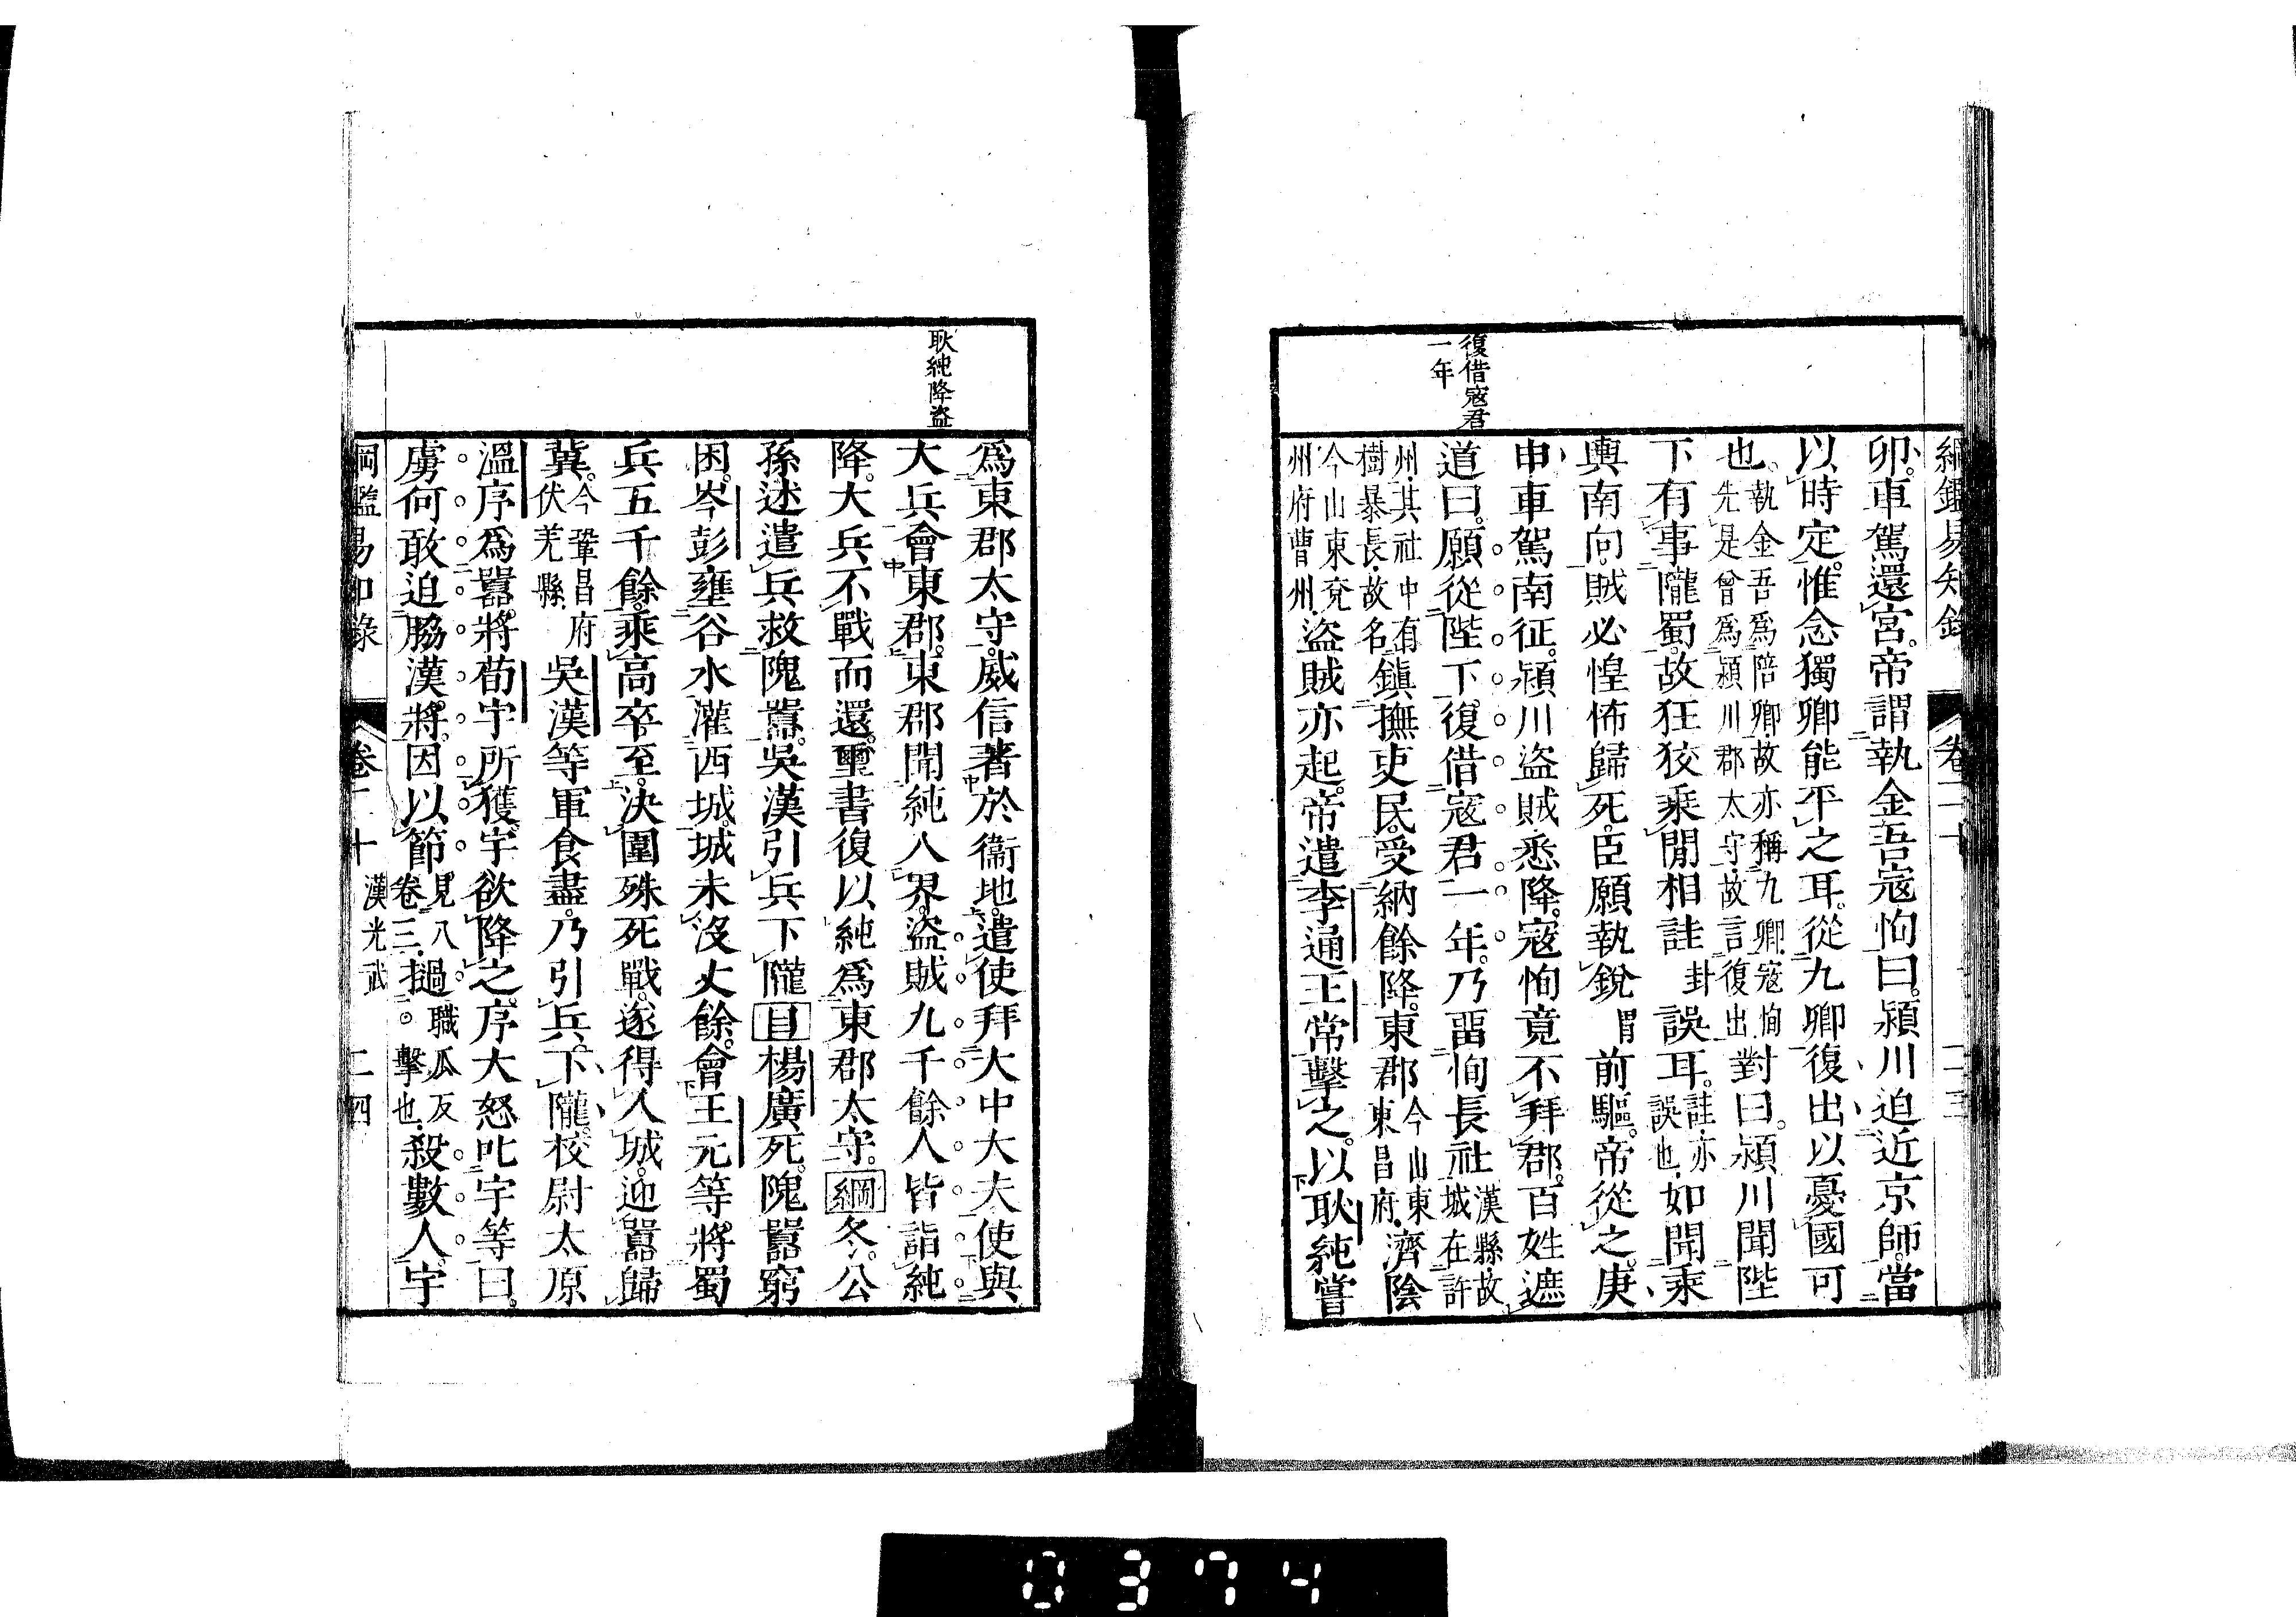 綱鑑易知錄 卷二十 二三
復借寇君
一年
卯。車駕還宮。帝謂執金吾寇恂曰。潁川迫近京師。當
以時定。惟念獨卿能平之耳。從九卿復出以憂國可
也。執金吾爲陪卿。故亦稱九卿。寇恂先是曾爲潁川郡太守。故言復出對曰。潁川聞陛
下有事隴蜀。故狂狡乘閒相詿卦誤耳。詿亦誤也。如聞乘
輿南向。賊必惶怖歸死。臣願執銳前驅。帝從之。庚
申車駕南征。潁川盜賊悉降。寇恂竟不拜郡。百姓遮
道曰。願從陛下復借寇君一年。乃畱恂長社漢縣故城在許
州。其社中有樹暴長。故名鎮撫吏民。受納餘降。東郡今山東東昌府。濟陰
今山東兗州府曹州。盜賊亦起。帝遣李通王常擊之。以耿純嘗
耿純降盜
爲東郡太守。威信著於衞地。遣使拜大中大夫使與
大兵會東郡。東郡聞純入界。盜賊九千餘人皆詣純
降。大兵不戰而還。璽書復以純爲東郡太守。綱冬。公
孫述遣兵救隗囂。吳漢引兵下隴目楊廣死。隗囂窮
困。岑彭壅谷水灌西城。城未沒丈餘。會王元等將蜀
兵五千餘。乘高卒至。決圍殊死戰。遂得入城。迎囂歸
冀。今鞏昌府伏羌縣。吳漢等軍食盡。乃引兵。下隴。校尉太原
溫序爲囂將荀宇所獲。宇欲降之。序大怒叱宇等曰。
虜何敢迫脇漢將。因以節見八卷三。撾職瓜反。擊也。殺數人。宇
綱鑑易知錄 卷二十 漢光武 二四
0374